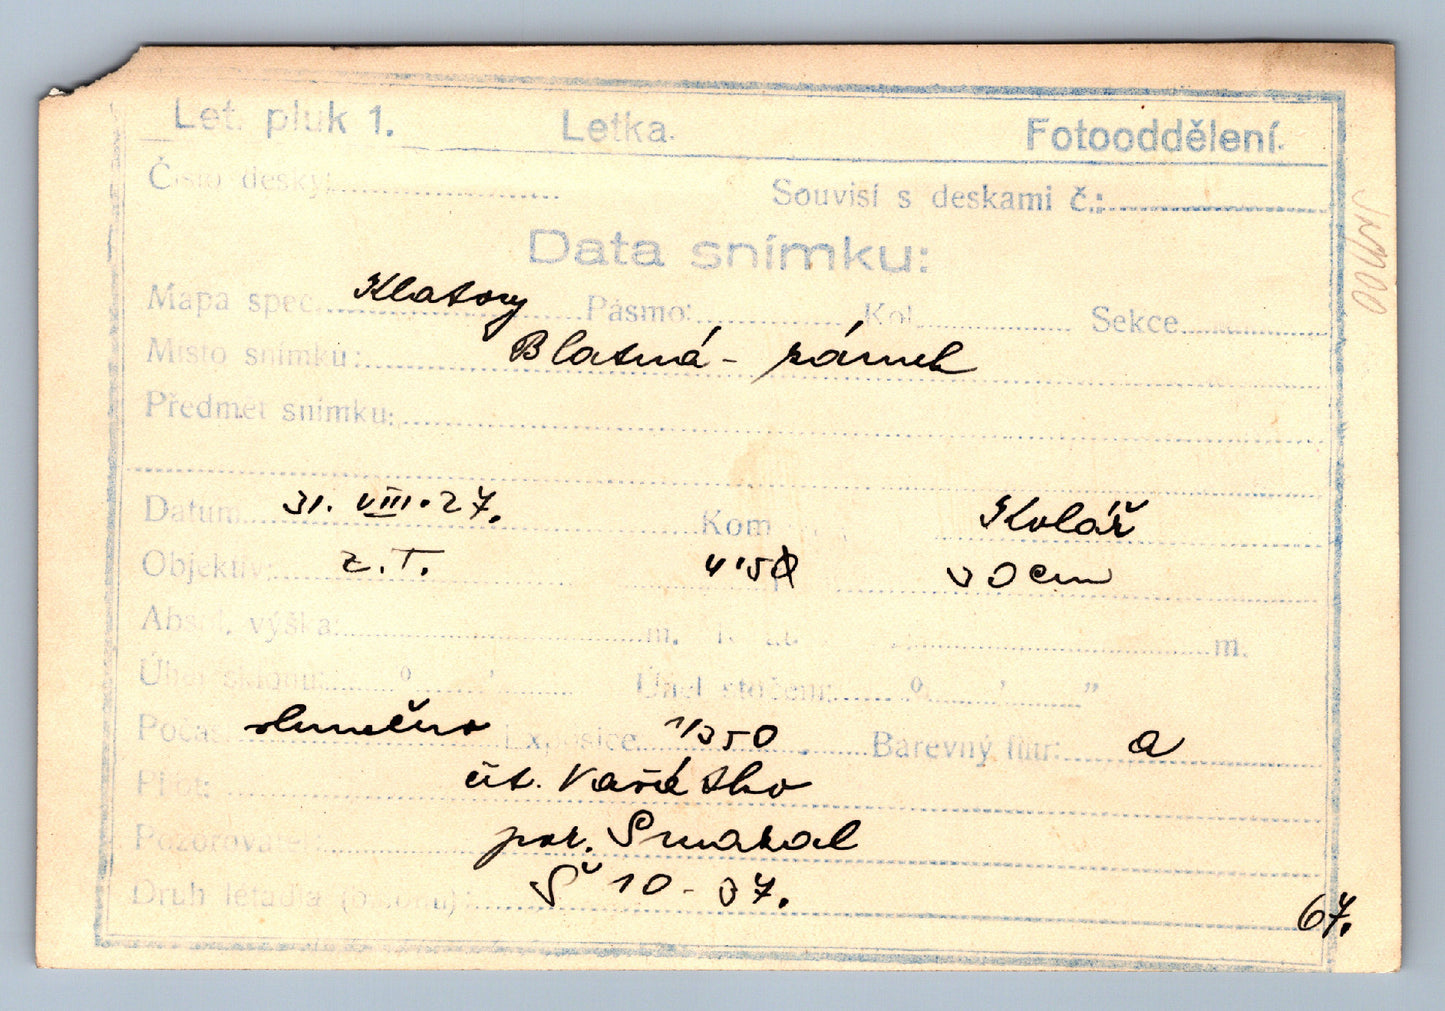 Let. pluk 1. Letka. Fotooddělení.
Číslo desky: Souvisí s deskami č.:
Data snímku:
Mapa spec. Klatovy Pásmo: Kol. Sekce
Místo snímku: Blatná - zámek
Předmět snímku:
Datum 31. VIII. 27. Kom Kolář
Objektiv: Z.T. 4'5 50cm
Absol. výška: m. m.
Úhel sklonu: ° ' Úhel stočení: ° ' "
Počas. slunečno Exposice: 1/350 Barevný filtr: a
Pilot: čet. Vařátko
Pozorovatel: por. Smazal
Druh letadla (balonu): Š 10-37.
67.